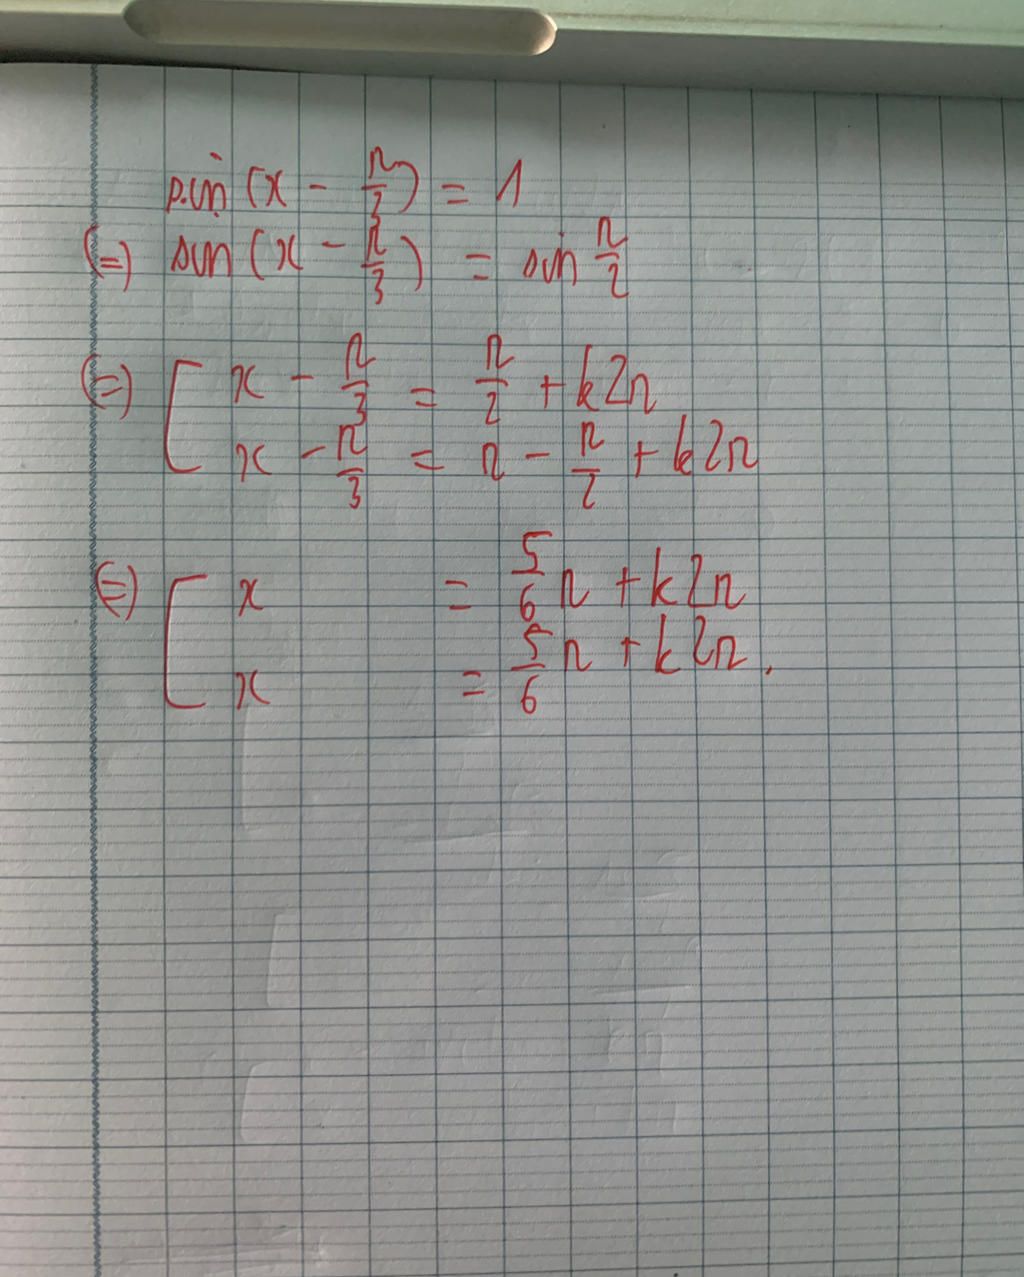 sin (x - π/3) = 1
(=) sin (x - π/3) = sin π/2
(=) [ x - π/3 = π/2 + k2π
x - π/3 = π - π/2 + k2π
(=) [ x = 5/6 π + k2π
x = 5/6 π + k2π.